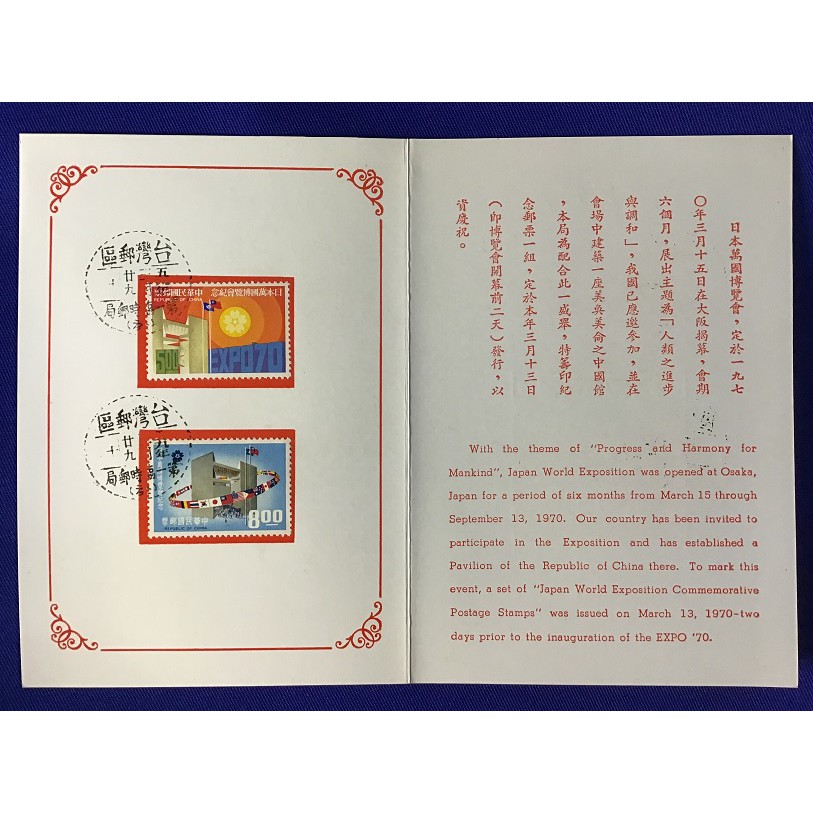 台灣郵區
廿九
臨時郵局
日本萬國博覽會紀念 中華民國郵票
REPUBLIC OF CHINA
5.00
EXPO'70
台灣郵區
廿九
臨時郵局
中華民國郵票
REPUBLIC OF CHINA
8.00
日本萬國博覽會,定於一九七
〇年三月十五日在大阪揭幕,會期
六個月,展出主題為「人類之進步
與調和」,我國已應邀參加,並在
會場中建築一座美奐美侖之中國館
,本局為配合此一盛舉,特籌印紀
念郵票一組,定於本年三月十三日
(即博覽會開幕前二天)發行,以
資慶祝。
With the theme of "Progress and Harmony for
Mankind", Japan World Exposition was opened at Osaka,
Japan for a period of six months from March 15 through
September 13, 1970. Our country has been invited to
participate in the Exposition and has established a
Pavilion of the Republic of China there. To mark this
event, a set of "Japan World Exposition Commemorative
Postage Stamps" was issued on March 13, 1970-two
days prior to the inauguration of the EXPO '70.